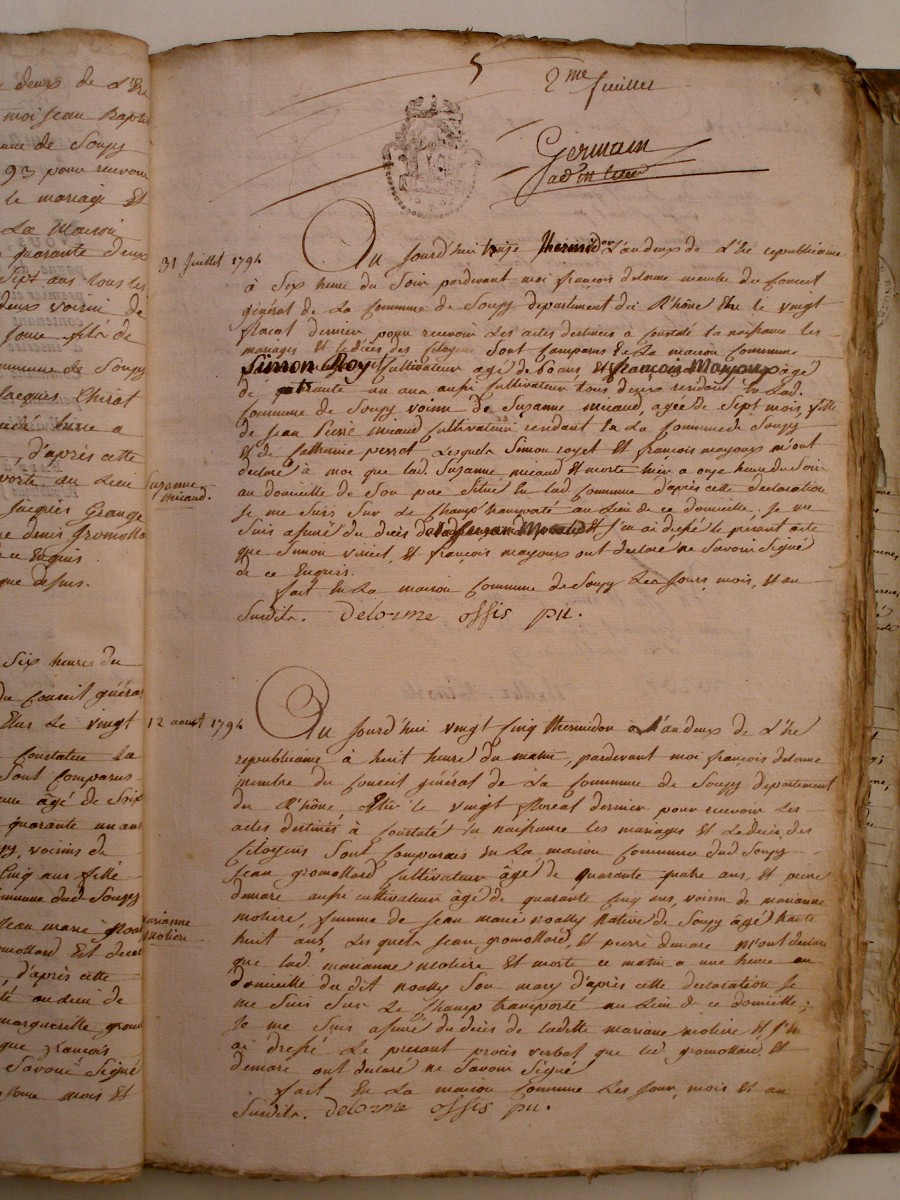 deux de L'Ere
moi jean Baptis
de Soupy
93 pour recevoir
le mariage Et
La Maison
quarante deux
Sept ans tous les
deux voisin de
fille de
commune de Soupy
Jacques Chirat
heure a
, d'après cette
porté au Lieu
Jacques Grange
denis gromolla
ce Enquis
que dessus.
Six heures du
du Conseil général
Elus Le vingt
Constater La
Sont Comparus
âgé de Soix
quarante un ans
voisins de
Cinq ans fille
commune dud Soupy
Jean marie
gromollard Est decedé
, d'après cette
té au Lieu de
marguerite gromo
que françois
Savoir Signé
Jour mois et
5 2me feuillet
Germain
31 Juillet 1794
Au jourd'hui treize thermidor L'an deux de L'Ere republicaine
à Six heure du Soir pardevant moi françois delorme membre du Conseil
général de La Commune de Soupy departement du Rhône Elu le vingt
floreal dernier pour recevoir Les actes destinées a Constaté la naissance les
mariages Et le décès des Citoyens Sont Comparus En La maison Commune
Simon Royet Cultivateur agé de 60 ans Et françois Mayoux agé
de quatrante un ans aussi Cultivateur tous deux residant En Lad.
Commune de Soupy voisins de Suzanne micaud, agée de Sept mois, fille
de Jean Pierre micaud Cultivateur residant En La Commune de Soupy
Et de Catherine perrot, Lesquels Simon royet Et françois mayoux m'ont
declaré à moi que lad. Suzanne micaud Est morte hier a onze heure du Soir
Suzanne
micaud.
au domicille de Son pere Situé En lad Commune d'après cette declaration
Je me Suis Sur Le Champ transporté au Lieu de ce domicille, Je me
Suis assuré du décès de lad Suzan Micaud Et J'en ai dressé le present acte
que Simon Et françois mayoux ont declaré ne Savoir Signé
de ce Enquis.
fait En La maison Commune de Soupy Les Jours, mois, Et an
Susdits. Delorme offis pu.
12 aoust 1794
Au jourd'hui vingt Cinq thermidor L'an deux de L'Ere
republicaine à huit heure du matin, pardevant moi françois delorme
membre du Conseil général de La Commune de Souppy departement
du Rhône Elu le vingt floreal dernier pour recevoir Les
actes destinés à Constaté la naissance les mariages Et Le decès des
Citoyens Sont Comparus En La maison Commune dud Soupy
Jean gromollard Cultivateur âgé de quarante quatre ans, Et pierre
demare aussi cultivateur âgé de quarante Cinq ans, voisin de marianne
molière, femme de Jean marie noally Native de Soupy âgé trante
marianne
molière
huit ans, Les quels Jean gromollard, Et pierre demare M'ont declaré
que lad. marianne moliere Est morte ce matin a une heure au
domicille du dit noally Son mary d'après cette declaration Je
me Suis Sur Le Champ transporté au Lieu de ce domicille;
Je me Suis assuré du décès de ladite mariane moliere Et J'en
ai dressé Le present procès verbal que led gromollard, Et
demare ont declaré ne Savoir Signé
fait En La maison Commune Les jour, mois Et an
Susdits. Delorme offis pu.